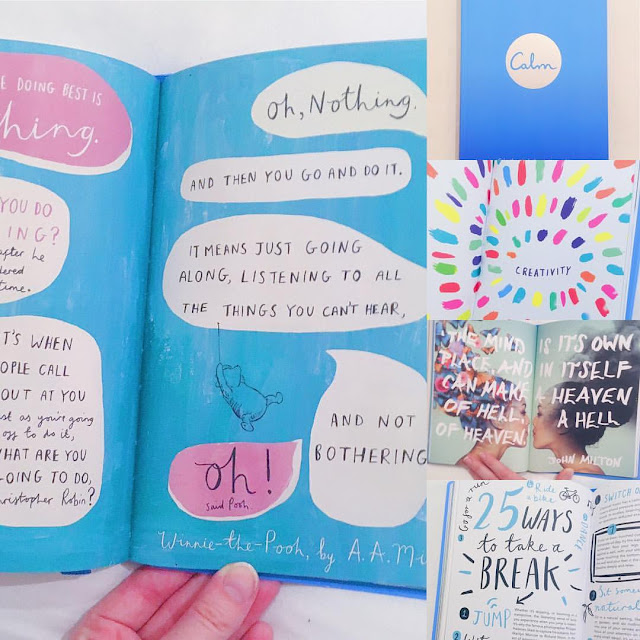 E DOING BEST IS
hing.
YOU DO
ING?
after he
dered
time.
T'S WHEN
OPLE CALL
OUT AT YOU
st as you're going
off to do it,
WHAT ARE YOU
OING TO DO,
Christopher Robin?
oh, Nothing.
AND THEN YOU GO AND DO IT.
IT MEANS JUST GOING
ALONG, LISTENING TO ALL
THE THINGS YOU CAN'T HEAR,
AND NOT
BOTHERING
oh!
said Pooh.
Winnie-the-Pooh, by A.A.Mi
Calm
CREATIVITY
THE MIND IS IT'S OWN
PLACE, AND IN ITSELF
CAN MAKE A HEAVEN
OF HELL, A HELL
OF HEAVEN.
JOHN MILTON
Go for a run
Ride
a bike
25 WAYS
to take a
BREAK
1 JUMP
SWITCH O
Sit some
natural